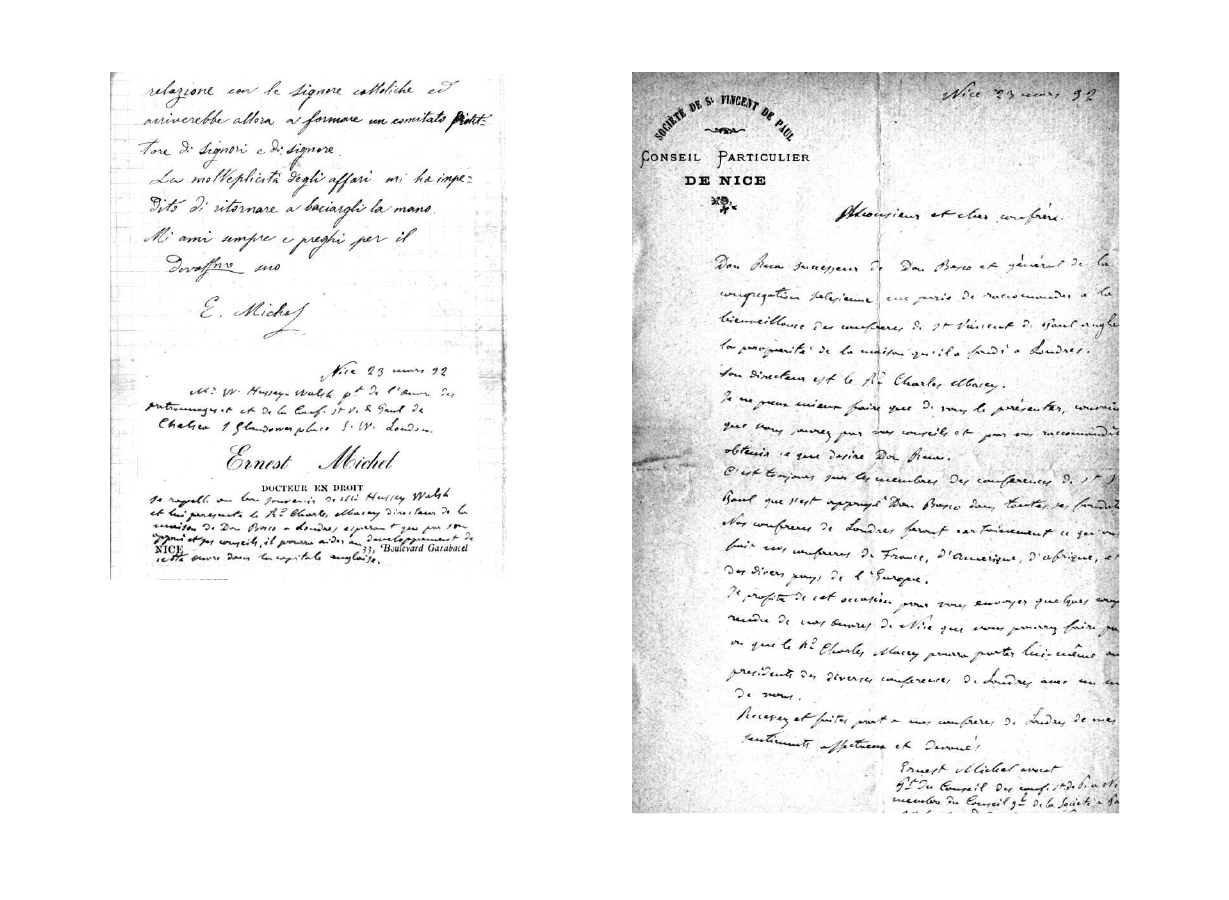 relazione con le signore cattoliche ed
arriverebbe allora a formare un comitato
tore di signori e di signore.
La molteplicità degli affari mi ha impe-
dito di ritornare a baciargli la mano.
Mi ami sempre e preghi per il
suo
E. Michel
Nice 23 mars 92
Mr W. Hussey-Walsh pt de l'œuvre des
patronnages et de la Conf. St V. de Paul de
Chelsea 1 Glendower place S. W. London.
Ernest Michel
DOCTEUR EN DROIT
se rappelle au bon souvenir de Mr Hussey Walsh
et lui présente le Rd Charles Macey directeur de la
maison de Don Bosco a Londres, esperant que par son
appui et ses conseils, il pourra aider au developpement de
NICE 33, Boulevard Garabacel
cette œuvre dans la capitale anglaise.
Nice 23 mars 92
SOCIÉTÉ DE St VINCENT DE PAUL
CONSEIL PARTICULIER
DE NICE
Monsieur et cher confrère.
Don Rua successeur de Don Bosco et général de la
congregation salesienne me prie de raccomander a la
bienveillance des confreres de St Vincent de Paul
la prosperité de la maison qu'il a fondé a Londres.
Son directeur est le Rd Charles Macey.
Je ne peux mieux faire que de vous le présenter,
que vous saurez par vos conseils et par vos
obtenir ce que desire Don Rua.
C'est toujours sur les membres des conferences de St V
Paul que s'est appuyé Don Bosco dans toutes ses
Nos confreres de Londres feront certainement ce que
fait nos confreres de France, d'Amerique, d'afrique, et
des divers pays de l'Europe.
Je profite de cet occasion pour vous envoyer quelques
rendu de nos œuvres de Nice que vous pourrez faire
ou que le Rd Charles Macey pourra porter lui-même au
presidents des diverses conferences de Londres avec un
de vous.
Recevez et faites part a mes confreres de Londres de mes
sentiments affectueux et devoués
Ernest Michel avocat
Pt du Conseil des conf. St de P. a Ni
membre du Conseil gl de la Société a Pa